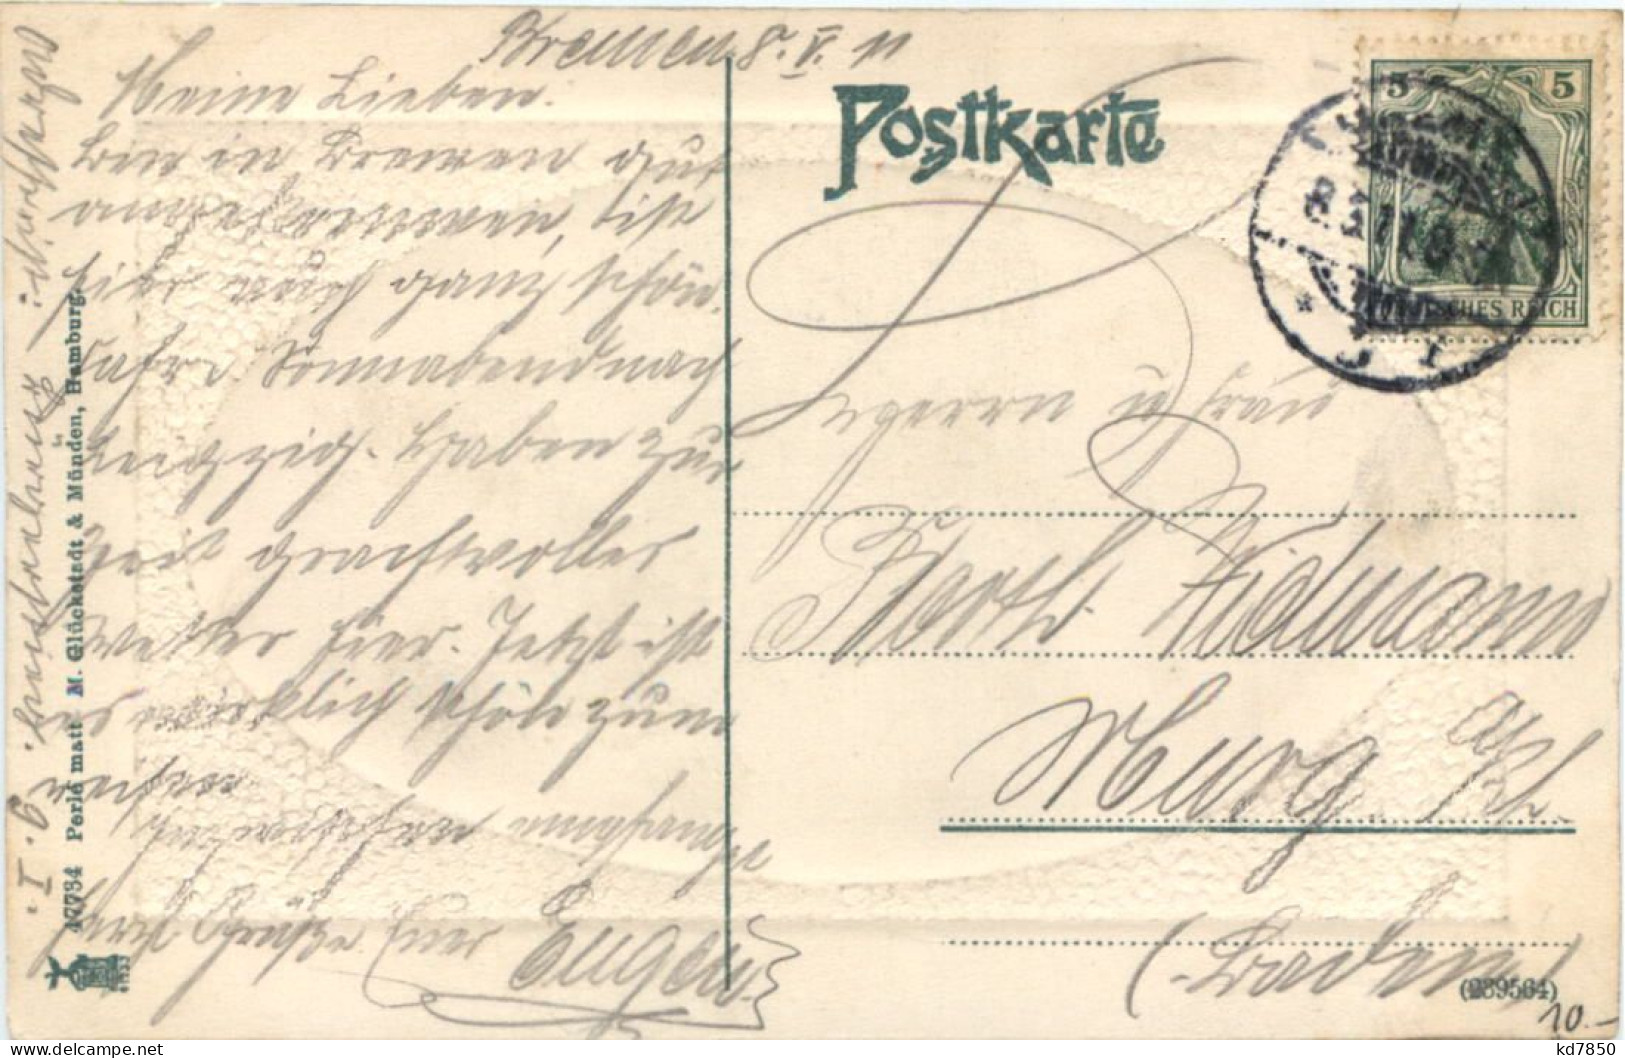 Bremen 8. V. 11
Meine Lieben.
Bin in Bremen gut
angekommen, ist
hier auch ganz schön.
Fahre Sonnabend nach
Leipzig. Haben zur
Zeit prachtvolles
Wetter hier. Jetzt ist
es wirklich schön zum
Grüße Euer
Eugen
Postkarte
5 5
DEUTSCHES REICH
8.5.11.
Herrn u Frau
Widmann
Murg
(Baden)
47734 Perle matt M. Glückstadt & Münden, Hamburg.
(239564)
10.-
kd7850